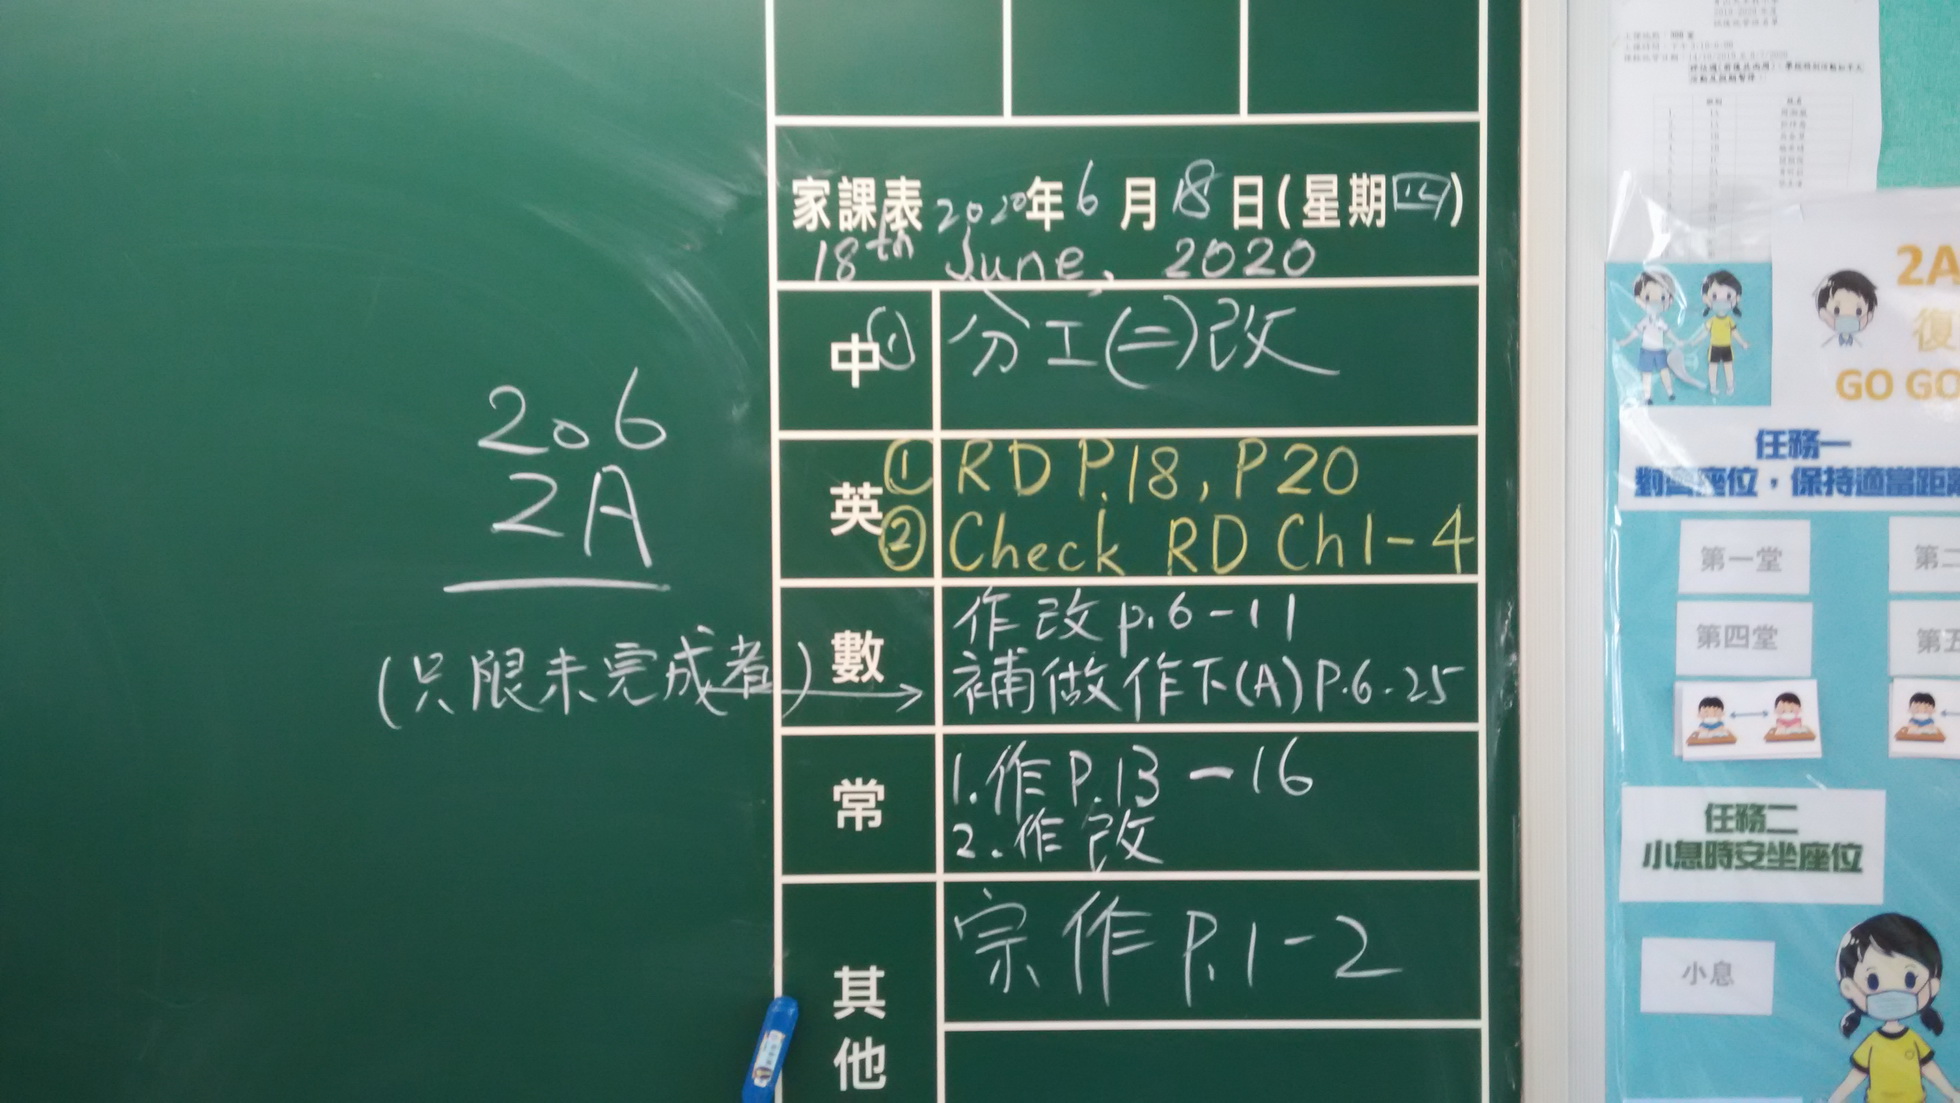 家課表 2020年 6 月 18 日(星期四)
18th June, 2020
中 ① 分工(二)改
英 ① RD P.18, P20
② Check RD Ch1-4
數 作改 p.6-11
補做作下(A) P.6-25
常 1.作P.13-16
2.作改
其他 宗作 P.1-2
206
2A
(只限未完成者)
2A
復
GO GO
任務一
對齊座位，保持適當距離
第一堂
第二
第四堂
第五
任務二
小息時安坐座位
小息